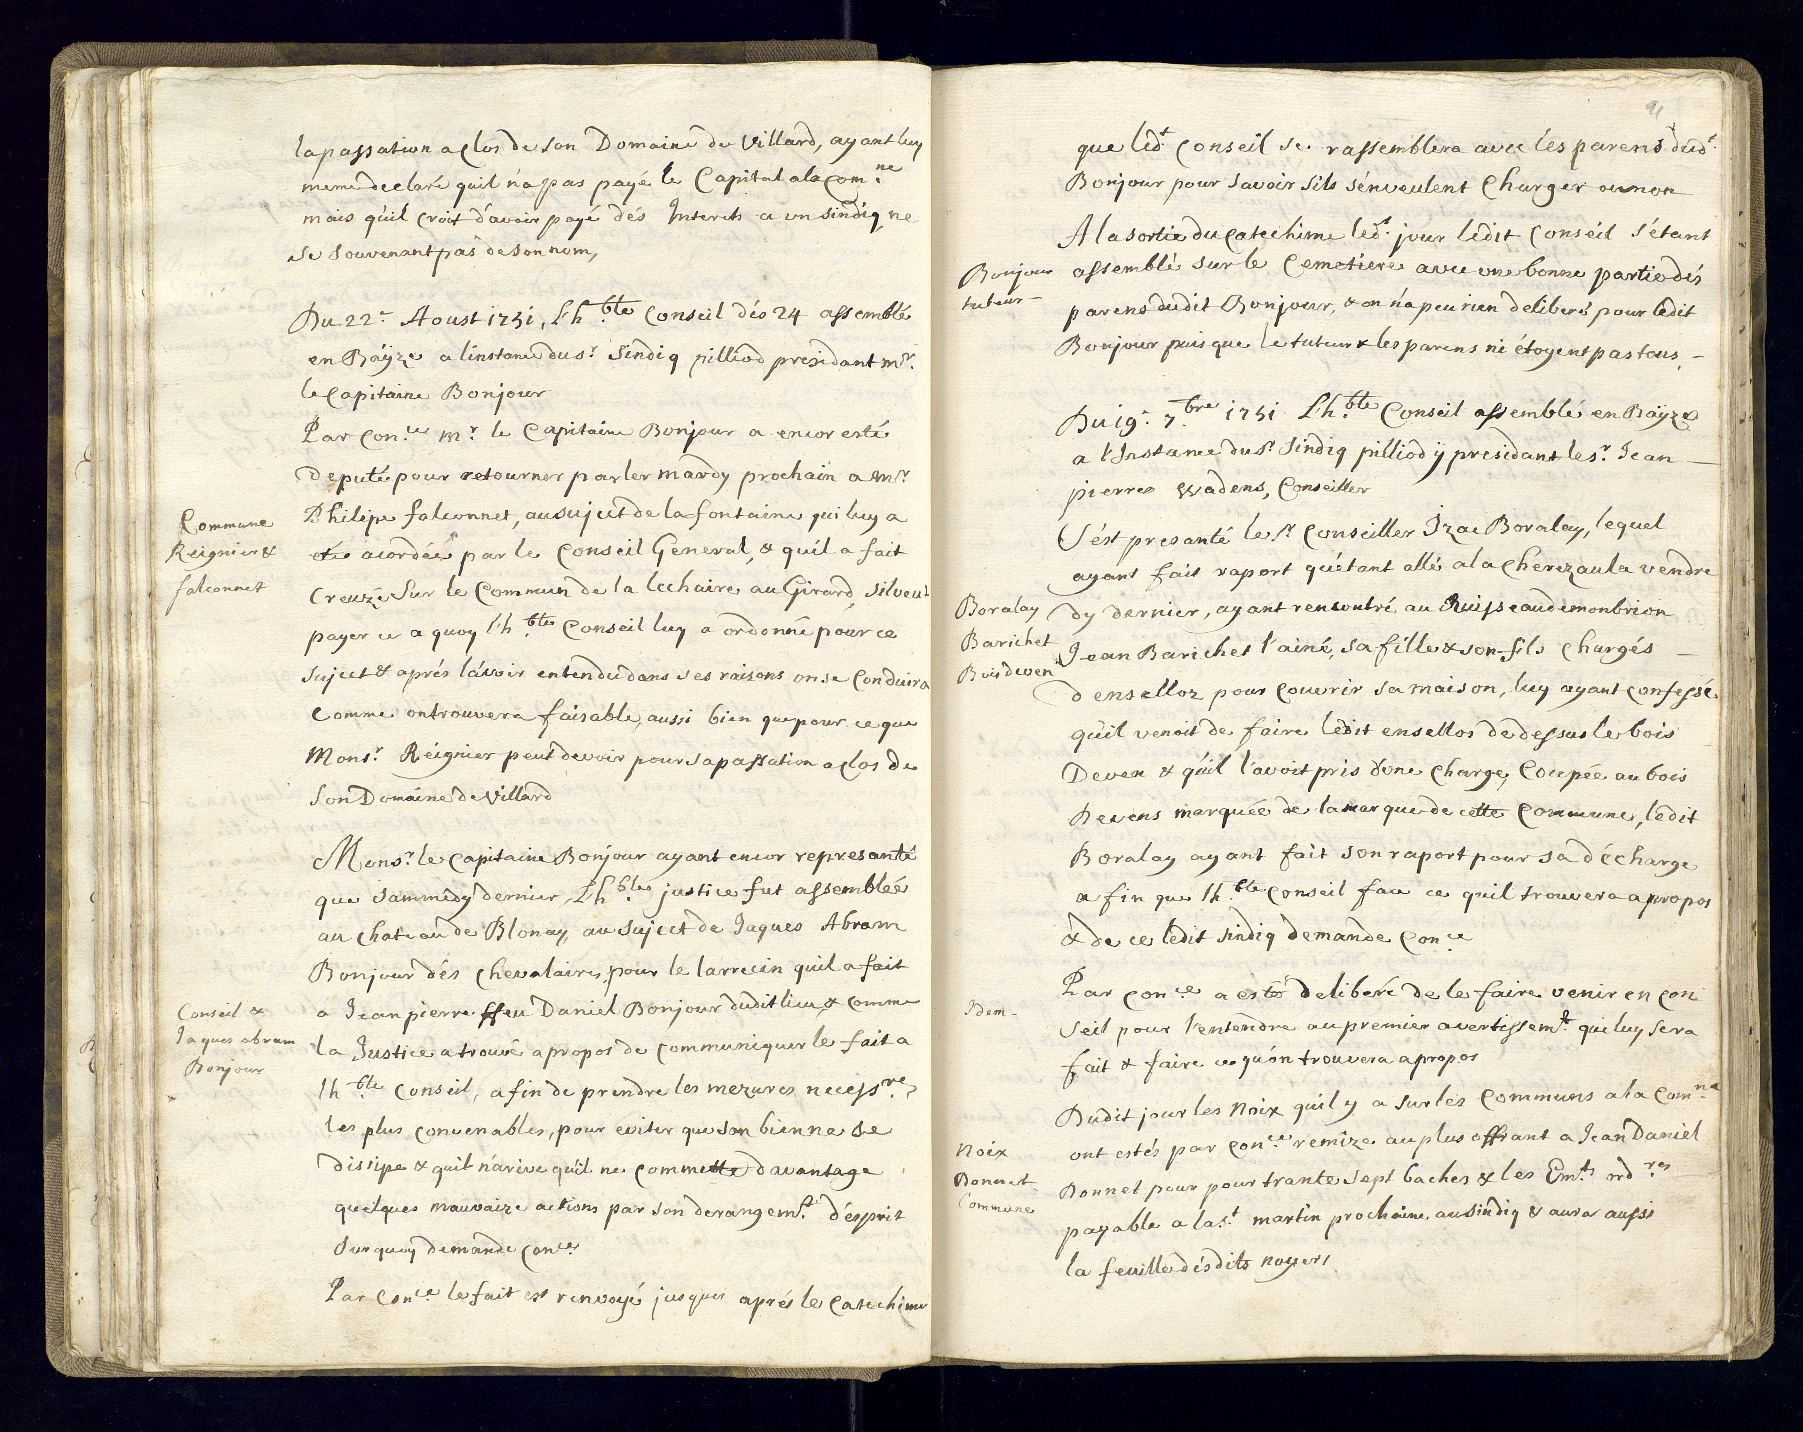 la passation a clos de son Domaine de Villard, ayant luy
meme declaré quil n'a pas payé le Capital a la Com.ne
mais qu'il croit d'avoir payé dés Interets a un sindiq, ne
se souvenant pas de son nom,
Du 22.e Aoust 1751, L'h.ble Conseil dés 24 assemblé
en Bäyze a linstance du s.r Sindiq pilliod presidant m.r
le Capitaine Bonjour
Par con.ce m.r le Capitaine Bonjour a encor esté
deputé pour retourner parler mardy prochain a m.r
Philipe falconnet, au sujet de la fontaine qui luy a
été acordée par le Conseil General, & qu'il a fait
Commune
Reignier &
falconnet
Creuzé Sur le Commun de la lechaire au Girard, sil veut
payer ce a quoy l'h.ble Conseil luy a ordonné pour ce
sujet & aprés l'avoir entendu dans ses raisons on se conduira
comme on trouvera faisable, aussi bien que pour ce que
Mons.r Reignier peut devoir pour sa passation a clos de
son Domaine de Villard
Mons.r le Capitaine Bonjour ayant encor represanté
que sammedy dernier, L'h.ble justice fut assemblée
au chateau de Blonay, au sujet de Jaques Abram
Bonjour dés Chevalaires, pour le larrecin quil a fait
a Jean pierre ffeu Daniel Bonjour dudit lieu, & comme
Conseil &
Jaques abram
Bonjour
la Justice a trouvé a propos de communiquer le fait a
lh.ble Conseil, a fin de prendre les mezures necess.res
les plus convenables, pour eviter que son bien ne se
dissipe & quil n'arive qu'il ne commette davantage
quelques mauvaize actions par son derangem.t d'esprit
Sur quoy demande con.ce
Par con.ce le fait est renvoyé jusques aprés le Catechime
91
que led.t Conseil se rassemblera avec lés parens dud.t
Bonjour pour savoir sils s'en veulent Charger ou non
A la sortie du Catechime led.t jour ledit Conseil s'étant
assemblé sur le Cemetiere avec une bonne partie dés
Bonjour
tuteur
parens dudit Bonjour, & on n'a peu rien deliberé pour ledit
Bonjour puis que le tuteur & les parens ni étoyent pas tous,
Du 19.e 7.bre 1751 L'h.ble Conseil assemblé en Bäyze
a l'Instance du s.r Sindiq pilliod ÿ presidant le s.r Jean
pierre Wadens, Conseiller
S'ést presanté le s.r Conseiller Izac Boralay, lequel
ayant fait raport qu'étant allé a la Cherezaula vendre
dy dernier, ayant rencontré au Ruisseau de monbrion
Boralay
Barichet
Bois deven
Jean Barichet l'ainé, sa fille & son fils chargés
d'enselloz pour couvrir sa maison, luy ayant confessé
qu'il venoit de faire ledit ensellos de dessus le bois
Deven & qu'il l'avoit pris d'une charge, Coupée au bois
Devens marquée de la marque de cette Commune, ledit
Boralay ayant fait son raport pour sa décharge
a fin que lh.ble Conseil face ce quil trouvera a propos
& de ce ledit sindiq demande con.ce
Par con.ce a esté deliberé de le faire venir en con
Idem
seil pour l'entendre au premier avertissem.t qui luy sera
fait & faire ce qu'on trouvera a propos
Dudit jour les Noix qu'il y a sur lés Communs a la Com.ne
ont estés par con.ce remize au plus offrant a Jean Daniel
Noix
Donnet
Commune
Donnet pour pour trante sept baches & les Em.ts ord.res
payable a la s.t martin prochaine, au sindiq & aura aussi
la feuille désdits noyers